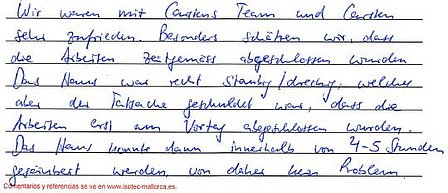 Wir waren mit Carstens Team und Carsten
sehr zufrieden. Besonders schätzen wir, dass
die Arbeiten zeitgemäss abgeschlossen wurden
Das Haus war recht staubig/dreckig, welches
aber der Tatsache geschuldet war, dass die
Arbeiten erst am Vortag abgeschlossen wurden.
Das Haus konnte dann innerhalb von 4-5 Stunden
gesäubert werden, von daher kein Problem.
Comentarios y referencias se ve en www.isotec-mallorca.es.